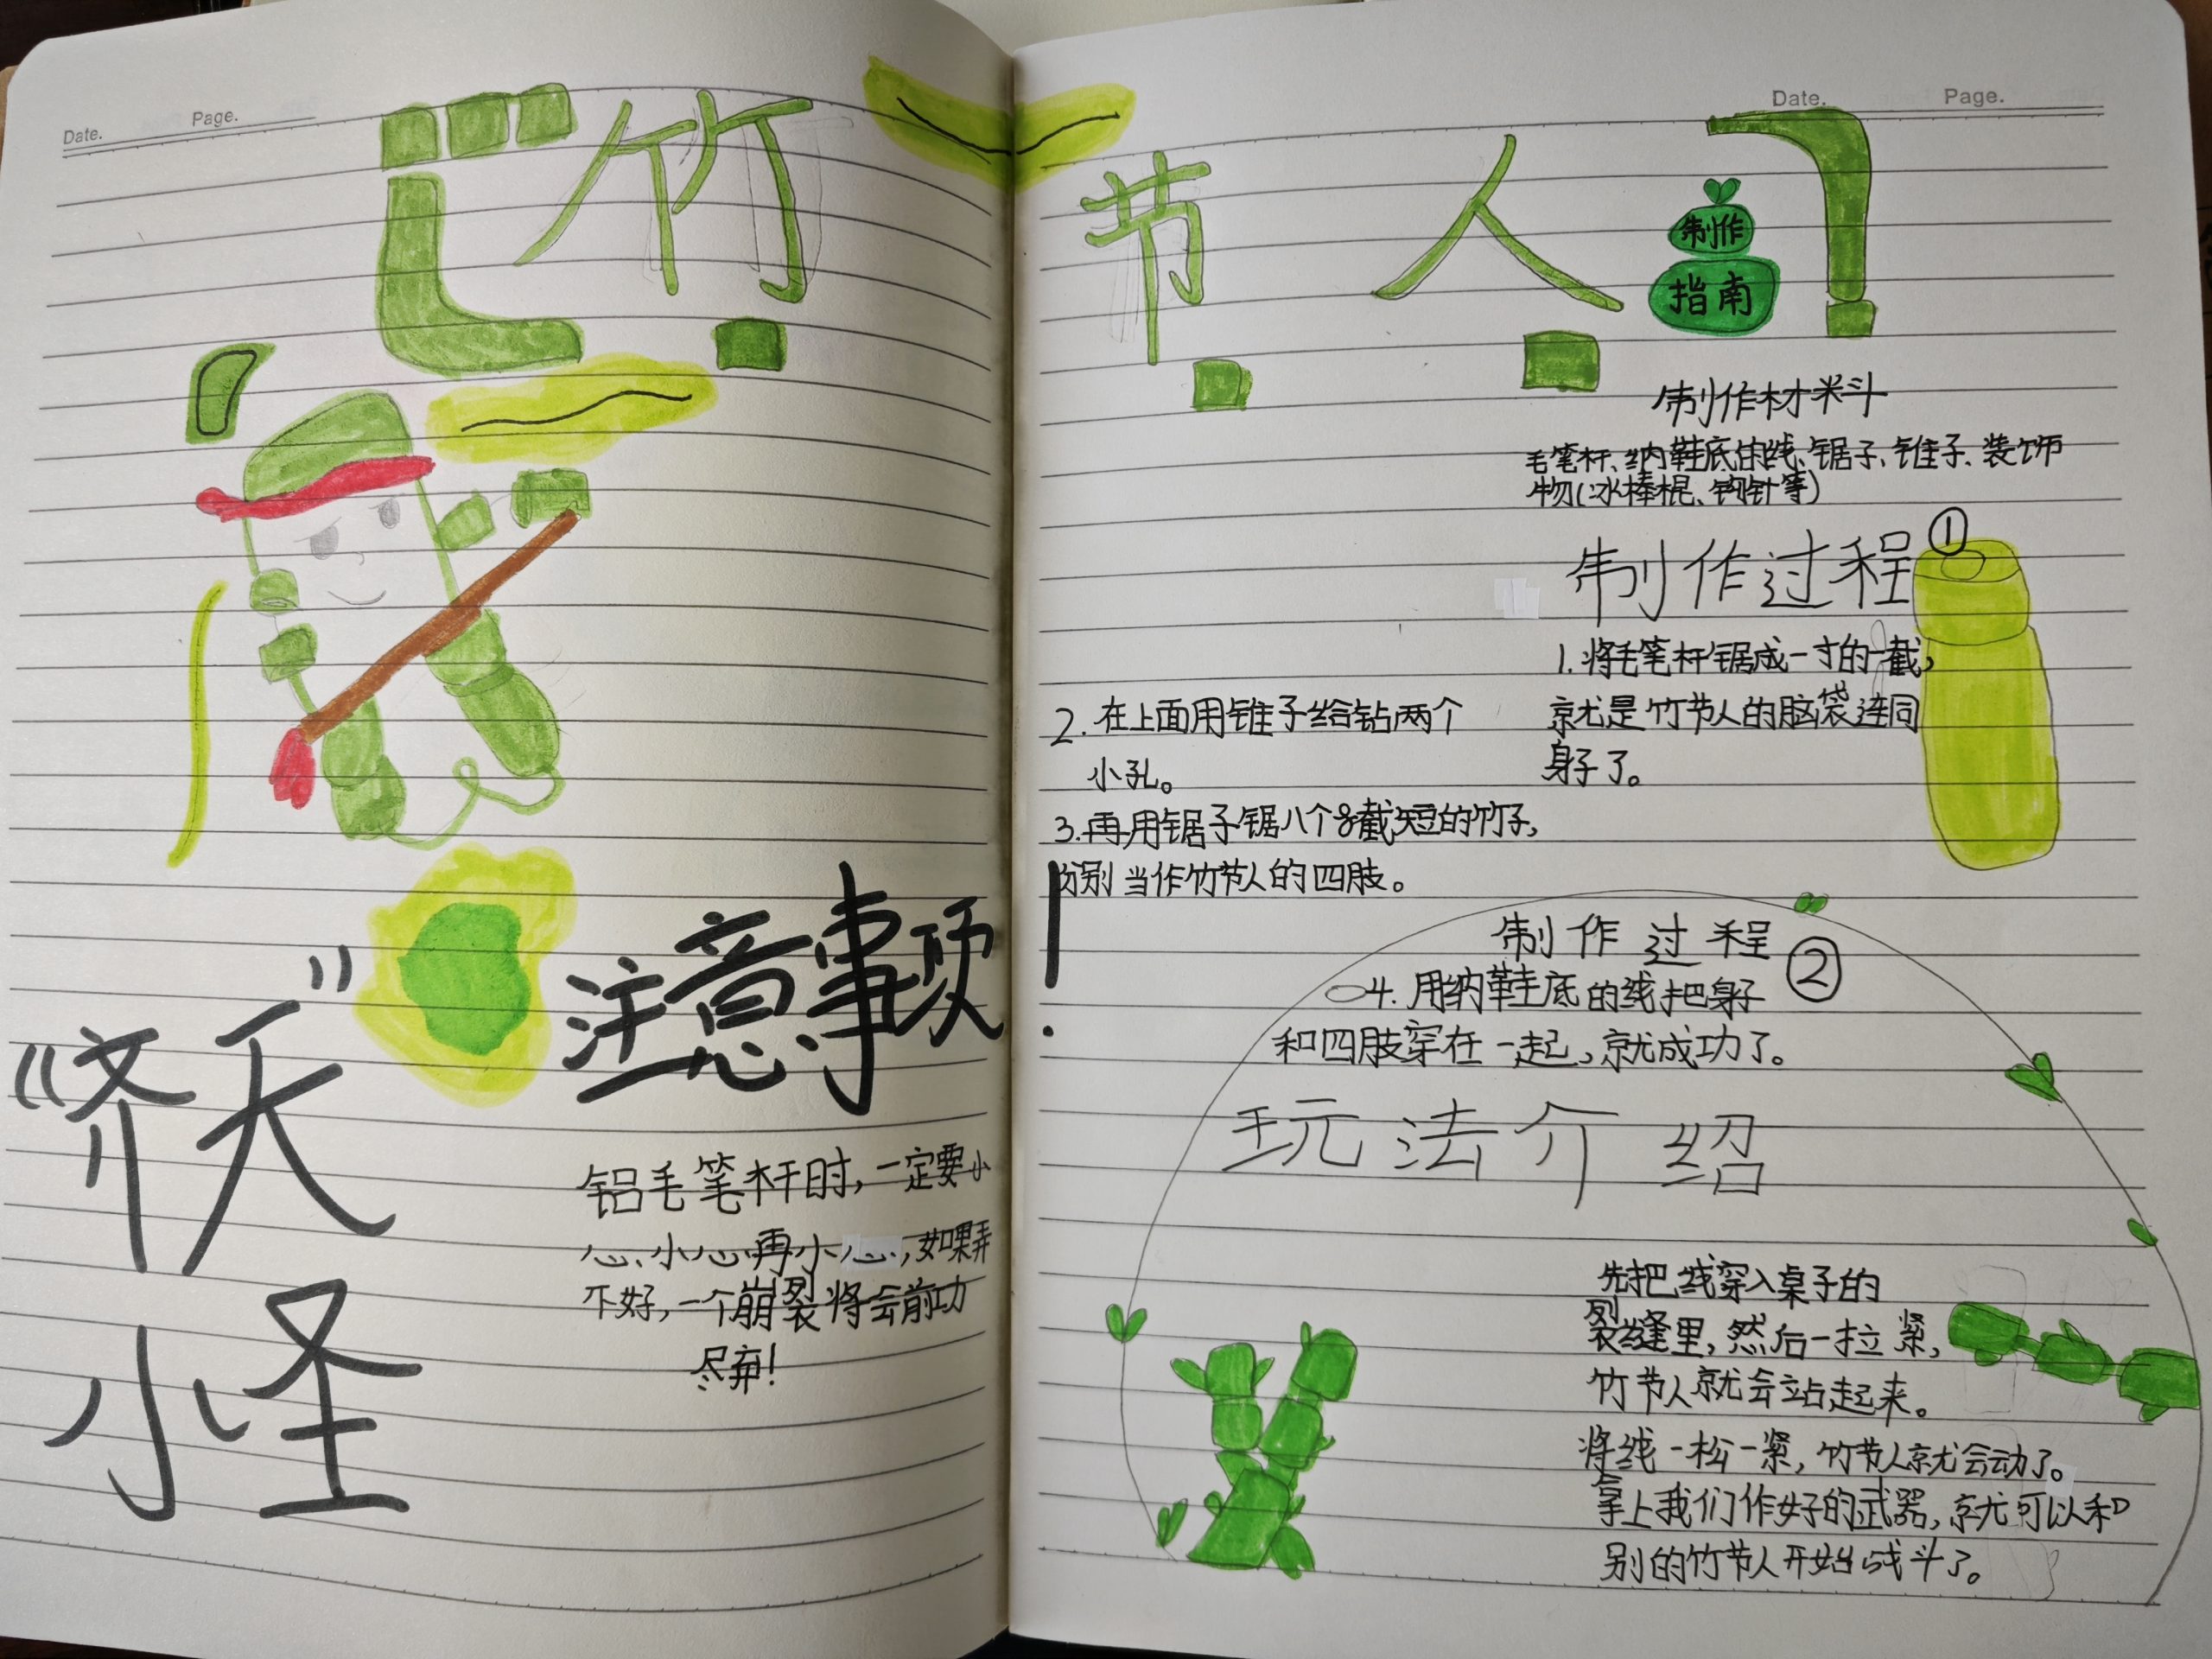 Date.
Page.
Date.
Page.
竹节人
制作
指南
制作材料
毛笔杆、纳鞋底的线、锯子、锥子、装饰
物(冰棒棍、钩针等)
制作过程①
1.将毛笔杆锯成一寸的一截,
就是竹节人的脑袋连同
身子了。
2.在上面用锥子给钻两个
小孔。
3.再用锯子锯八个截短的竹子,
分别当作竹节人的四肢。
制作过程②
4.用纳鞋底的线把身子
和四肢穿在一起,就成功了。
玩法介绍
先把线穿入桌子的
裂缝里,然后一拉紧,
竹节人就会站起来。
将线一松一紧,竹节人就会动了。
拿上我们作好的武器,就可以和
别的竹节人开始战斗了。
“齐天”
小圣
注意事项!
铝毛笔杆时,一定要小
心、小心再小心,如果弄
不好,一个崩裂将会前功
尽弃!